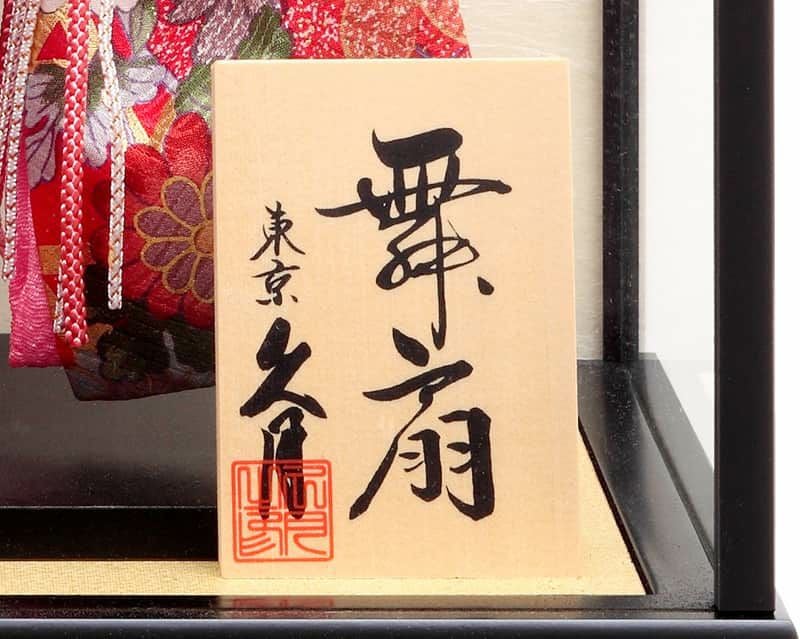 舞扇
東京
久月